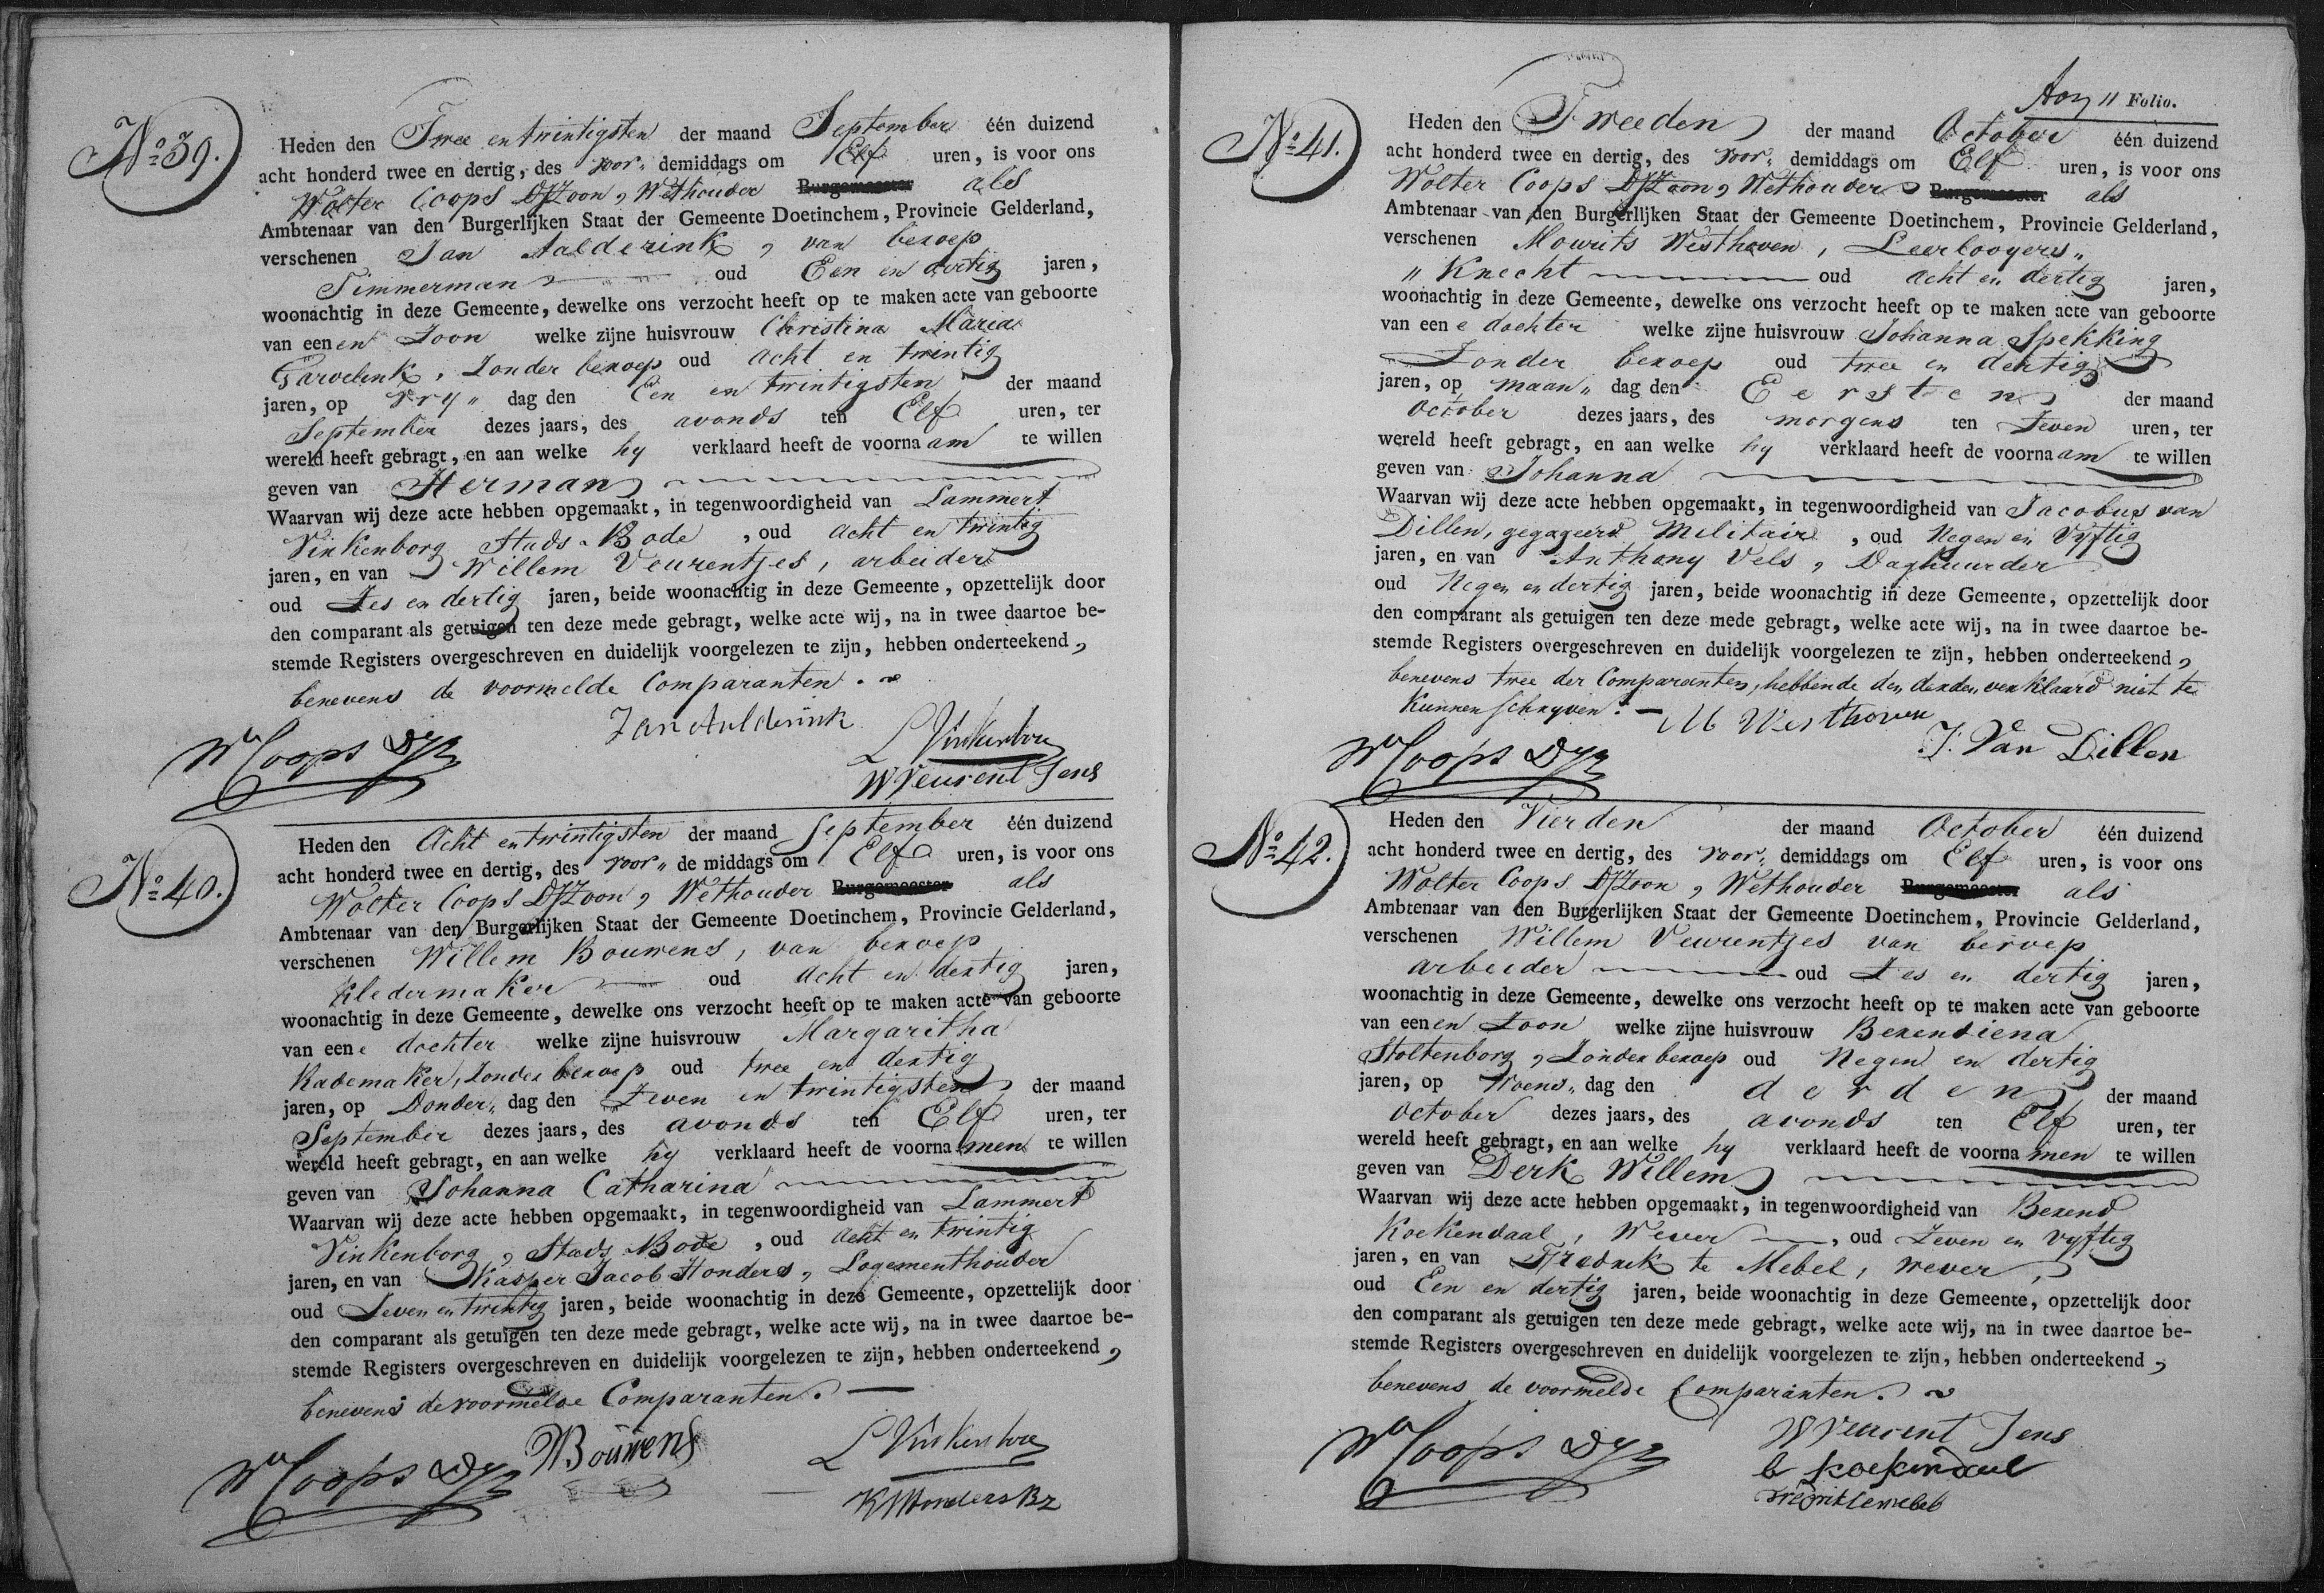 No 39.
Heden den Twee en twintigsten der maand September één duizend
acht honderd twee en dertig, des voor„ demiddags om Elf uren, is voor ons
Wolter Coops DJZoon, Wethouder Burgemeester als
Ambtenaar van den Burgerlijken Staat der Gemeente Doetinchem, Provincie Gelderland,
verschenen Jan Aalderink, van beroep
Timmerman oud Een en dertig jaren,
woonachtig in deze Gemeente, dewelke ons verzocht heeft op te maken acte van geboorte
van eenen Zoon welke zijne huisvrouw Christina Maria
Garvelink, Zonder beroep oud acht en twintig
jaren, op Vry„ dag den Een en twintigsten der maand
September dezes jaars, des avonds ten Elf uren, ter
wereld heeft gebragt, en aan welke hy verklaard heeft de voornaam te willen
geven van Herman
Waarvan wij deze acte hebben opgemaakt, in tegenwoordigheid van Lammert
Vinkenborg Stads-Bode, oud acht en twintig
jaren, en van Willem Veurentjes, arbeider
oud Zes en dertig jaren, beide woonachtig in deze Gemeente, opzettelijk door
den comparant als getuigen ten deze mede gebragt, welke acte wij, na in twee daartoe be-
stemde Registers overgeschreven en duidelijk voorgelezen te zijn, hebben onderteekend,
benevens de voormelde Comparanten.
Jan Aulderink
Wr Coops DJz
L Vinkenborg
W Veurent Jens
No 40.
Heden den Acht en twintigsten der maand September één duizend
acht honderd twee en dertig, des voor„ de middags om Elf uren, is voor ons
Wolter Coops DJZoon, Wethouder Burgemeester als
Ambtenaar van den Burgerlijken Staat der Gemeente Doetinchem, Provincie Gelderland,
verschenen Willem Bouwens, van beroep
Kledermaker oud acht en dertig jaren,
woonachtig in deze Gemeente, dewelke ons verzocht heeft op te maken acte van geboorte
van eene dochter welke zijne huisvrouw Margaritha
Rademaker, Zonder beroep oud twee en dertig
jaren, op Donder„ dag den Zeven en twintigsten der maand
September dezes jaars, des avonds ten Elf uren, ter
wereld heeft gebragt, en aan welke hy verklaard heeft de voornamen te willen
geven van Johanna Catharina
Waarvan wij deze acte hebben opgemaakt, in tegenwoordigheid van Lammert
Vinkenborg, Stads Bode, oud acht en twintig
jaren, en van Kasper Jacob Honders, Logementhouder
oud Zeven en twintig jaren, beide woonachtig in deze Gemeente, opzettelijk door
den comparant als getuigen ten deze mede gebragt, welke acte wij, na in twee daartoe be-
stemde Registers overgeschreven en duidelijk voorgelezen te zijn, hebben onderteekend,
benevens de voormelde Comparanten.
Wr Coops DJz
W Bouwens
L Vinkenborg
11 Folio.
No 41.
Heden den Tweeden der maand October één duizend
acht honderd twee en dertig, des voor„ demiddags om Elf uren, is voor ons
Wolter Coops DJZoon, Wethouder Burgemeester als
Ambtenaar van den Burgerlijken Staat der Gemeente Doetinchem, Provincie Gelderland,
verschenen Mourits Westhoven, Leerlooyers„
„ Knecht oud acht en dertig jaren,
woonachtig in deze Gemeente, dewelke ons verzocht heeft op te maken acte van geboorte
van eene dochter welke zijne huisvrouw Johanna Spekking
Zonder beroep oud twee en dertig
jaren, op maan„ dag den Eersten der maand
October dezes jaars, des morgens ten Zeven uren, ter
wereld heeft gebragt, en aan welke hy verklaard heeft de voornaam te willen
geven van Johanna
Waarvan wij deze acte hebben opgemaakt, in tegenwoordigheid van Jacobus van
Dillen, gegageerd Militair, oud Negen en Vyftig
jaren, en van Anthony Vels, Daghuurder
oud Negen en dertig jaren, beide woonachtig in deze Gemeente, opzettelijk door
den comparant als getuigen ten deze mede gebragt, welke acte wij, na in twee daartoe be-
stemde Registers overgeschreven en duidelijk voorgelezen te zijn, hebben onderteekend,
benevens twee der Comparanten, hebbende den derden verklaard niet te
Kunnen schryven.
M Westhoven
Wr Coops DJz
J. Van Dillen
No 42.
Heden den Vierden der maand October één duizend
acht honderd twee en dertig, des voor„ demiddags om Elf uren, is voor ons
Wolter Coops DJZoon, Wethouder Burgemeester als
Ambtenaar van den Burgerlijken Staat der Gemeente Doetinchem, Provincie Gelderland,
verschenen Willem Veurentjes van beroep
arbeider oud Zes en dertig jaren,
woonachtig in deze Gemeente, dewelke ons verzocht heeft op te maken acte van geboorte
van eenen Zoon welke zijne huisvrouw Berendiena
Stoltenborg, Zonder beroep oud Negen en dertig
jaren, op Woens„ dag den derden der maand
October dezes jaars, des avonds ten Elf uren, ter
wereld heeft gebragt, en aan welke hy verklaard heeft de voornamen te willen
geven van Derk Willem
Waarvan wij deze acte hebben opgemaakt, in tegenwoordigheid van Berend
Koekendaal, Wever, oud Zeven en vyftig
jaren, en van Fredrik te Mebel, wever,
oud Een en dertig jaren, beide woonachtig in deze Gemeente, opzettelijk door
den comparant als getuigen ten deze mede gebragt, welke acte wij, na in twee daartoe be-
stemde Registers overgeschreven en duidelijk voorgelezen te zijn, hebben onderteekend,
benevens de voormelde Comparanten.
Wr Coops DJz
W Veurent Jens
b koekendaal